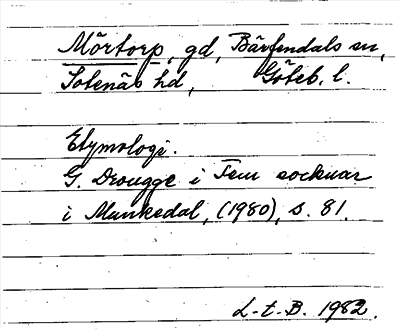 Mörtorp, gd, Bärfendals sn,
Sotenäs hd, Göteb. l.
Etymologi.
G. Drougge i Fem socknar
i Munkedal, (1980), s. 81.
L-t-B. 1982.